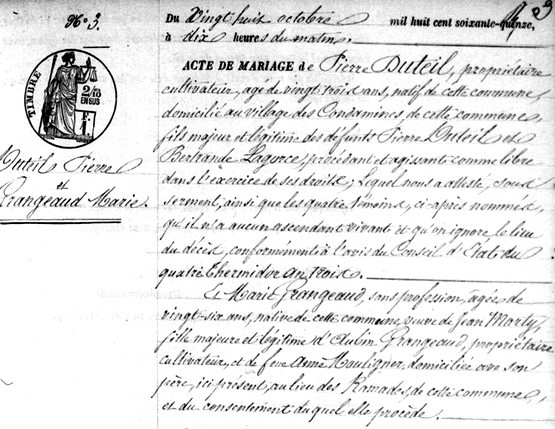 N° 3.
Du Vingt huit octobre mil huit cent soixante-quinze,
à dix heures du matin.
TIMBRE
2/10
EN SUS
F. 1
Duteil Pierre
et
Grangeaud Marie.
ACTE DE MARIAGE de Pierre Duteil, propriétaire
cultivateur, agé de vingt trois ans, natif de cette commune,
domicilié au village des Condamines, de cette commune,
fils majeur et légitime des défunts Pierre Duteil et
Bertrande Lagorce, procédant et agissant comme libre
dans l'exercice de ses droits; Lequel nous a attesté, sous
serment, ainsi que les quatre témoins, ci-après nommés,
qu'il n'a aucun ascendant vivant et qu'on ignore le lieu
du décès, conformément à l'avis du Conseil d'État du
quatre Thermidor an treize.
Et Marie Grangeaud, sans profession, agée de
vingt-six ans, native de cette commune, veuve de Jean Marty,
fille majeure et légitime d'Aubin Grangeaud, propriétaire
cultivateur, et de feue Anne Moulignier, domiciliée avec son
père, ici présent, au lieu des Ramades, de cette commune,
et du consentement du quel elle procède.